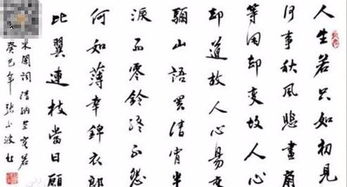 人生若只如初见
何事秋風悲畫扇
等闲却變故人心
却道故人心易變
驪山語罢清宵半
淚雨零鈴終不怨
何如薄幸錦衣郎
比翼連枝當日願
木蘭詞清納兰容若
癸巳年張小波书